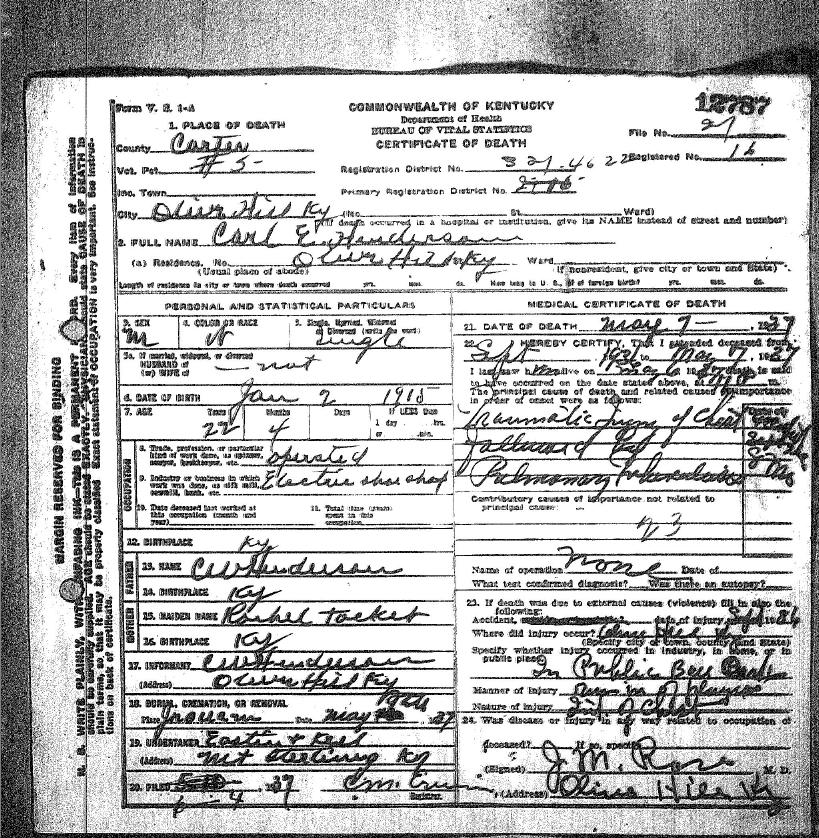 Form V. S. 1-A
COMMONWEALTH OF KENTUCKY
Department of Health
BUREAU OF VITAL STATISTICS
CERTIFICATE OF DEATH
12787
File No. 21
Registered No. 16
1. PLACE OF DEATH
County Carter
Vot. Pct. #5
Inc. Town
Registration District No.
Primary Registration District No.
City Olive Hill Ky (No. St. Ward)
(If death occurred in a hospital or institution, give its NAME instead of street and number)
2. FULL NAME Carl E. Henderson
(a) Residence. No. Olive Hill Ky Ward.
(Usual place of abode) (If nonresident, give city or town and State)
Length of residence in city or town where death occurred yrs. mos. ds. How long in U. S., if of foreign birth? yrs. mos. ds.
PERSONAL AND STATISTICAL PARTICULARS
3. SEX M
4. COLOR OR RACE W
5. Single, Married, Widowed or Divorced (write the word) Single
5a. If married, widowed, or divorced
HUSBAND of
(or) WIFE of not
6. DATE OF BIRTH Jan 2 1915
7. AGE Years 22 Months 4 Days If LESS than 1 day hrs. or min.
OCCUPATION
8. Trade, profession, or particular kind of work done, as spinner, sawyer, bookkeeper, etc. operated
9. Industry or business in which work was done, as silk mill, sawmill, bank, etc. Electric shoe shop
10. Date deceased last worked at this occupation (month and year)
11. Total time (years) spent in this occupation
12. BIRTHPLACE Ky
FATHER
13. NAME C W Henderson
14. BIRTHPLACE Ky
MOTHER
15. MAIDEN NAME Rachel Tacket
16. BIRTHPLACE Ky
17. INFORMANT C W Henderson
(Address) Olive Hill Ky
18. BURIAL, CREMATION, OR REMOVAL
Place Date May 1937
19. UNDERTAKER Eastin &
(Address) Mt Sterling Ky
20. FILED 6-4, 1937
Registrar.
MEDICAL CERTIFICATE OF DEATH
21. DATE OF DEATH May 7-, 1937
22. I HEREBY CERTIFY, That I attended deceased from
Sept 1936 to May 7, 1937
I last saw him alive on May 6 1937 death is said
to have occurred on the date stated above, at m.
The principal cause of death and related causes of importance
in order of onset were as follows:
Traumatic Injury of Chest
Followed by
Pulmonary Tuberculosis
Date of onset
Contributory causes of importance not related to
principal cause:
23
Name of operation None Date of
What test confirmed diagnosis? Was there an autopsy?
23. If death was due to external causes (violence) fill in also the
following:
Accident, date of injury Sept 1936
Where did injury occur? Olive Hill Ky
(Specify city or town, county, and State)
Specify whether injury occurred in industry, in home, or in
public place.
In Public
Manner of Injury
Nature of Injury Inj of Chest
24. Was disease or injury in any way related to occupation of
deceased? If so, specify
(Signed) J. M. Rose M. D.
(Address) Olive Hill Ky
MARGIN RESERVED FOR BINDING